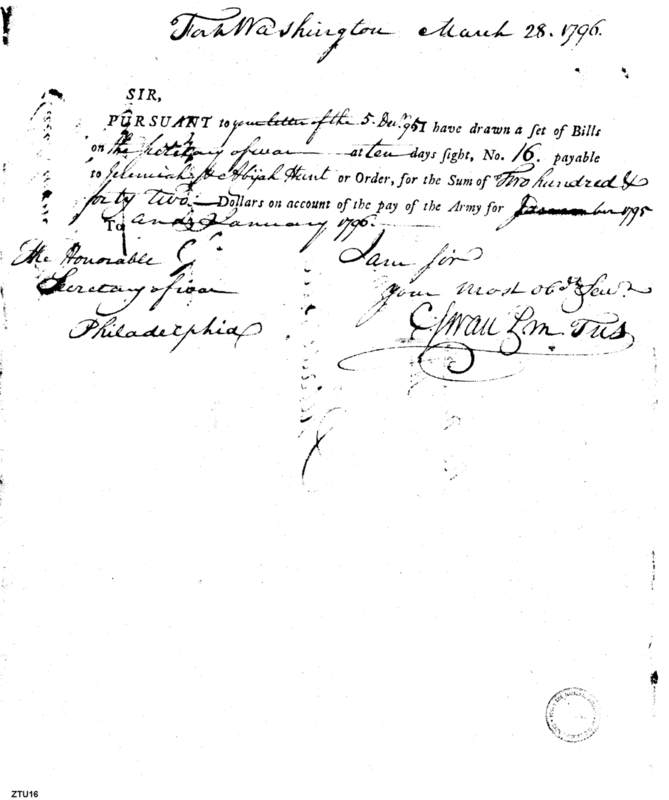 Fort Washington March 28. 1796.
SIR,
PURSUANT to your letter of the 5. Decr. 95 I have drawn a set of Bills
on the Secretary of war at ten days sight, No. 16. payable
to Jeremiah & Abijah Hunt or Order, for the Sum of Two hundred &
forty two Dollars on account of the pay of the Army for 1795
To and January 1796.
The Honorable
Secretary of war
Philadelphia
I am Sir
your most obdt. Servt.
C Swan P m TUS
ZTU16